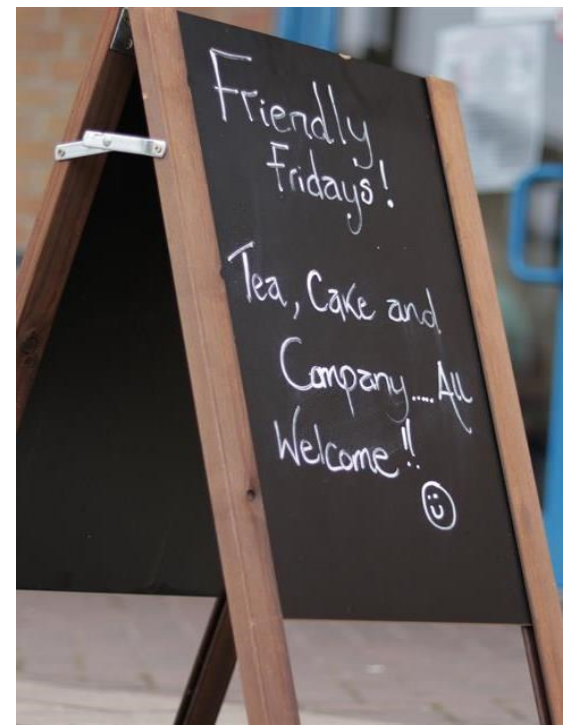 Friendly
Fridays!
Tea, Cake and
Company.....All
Welcome!!